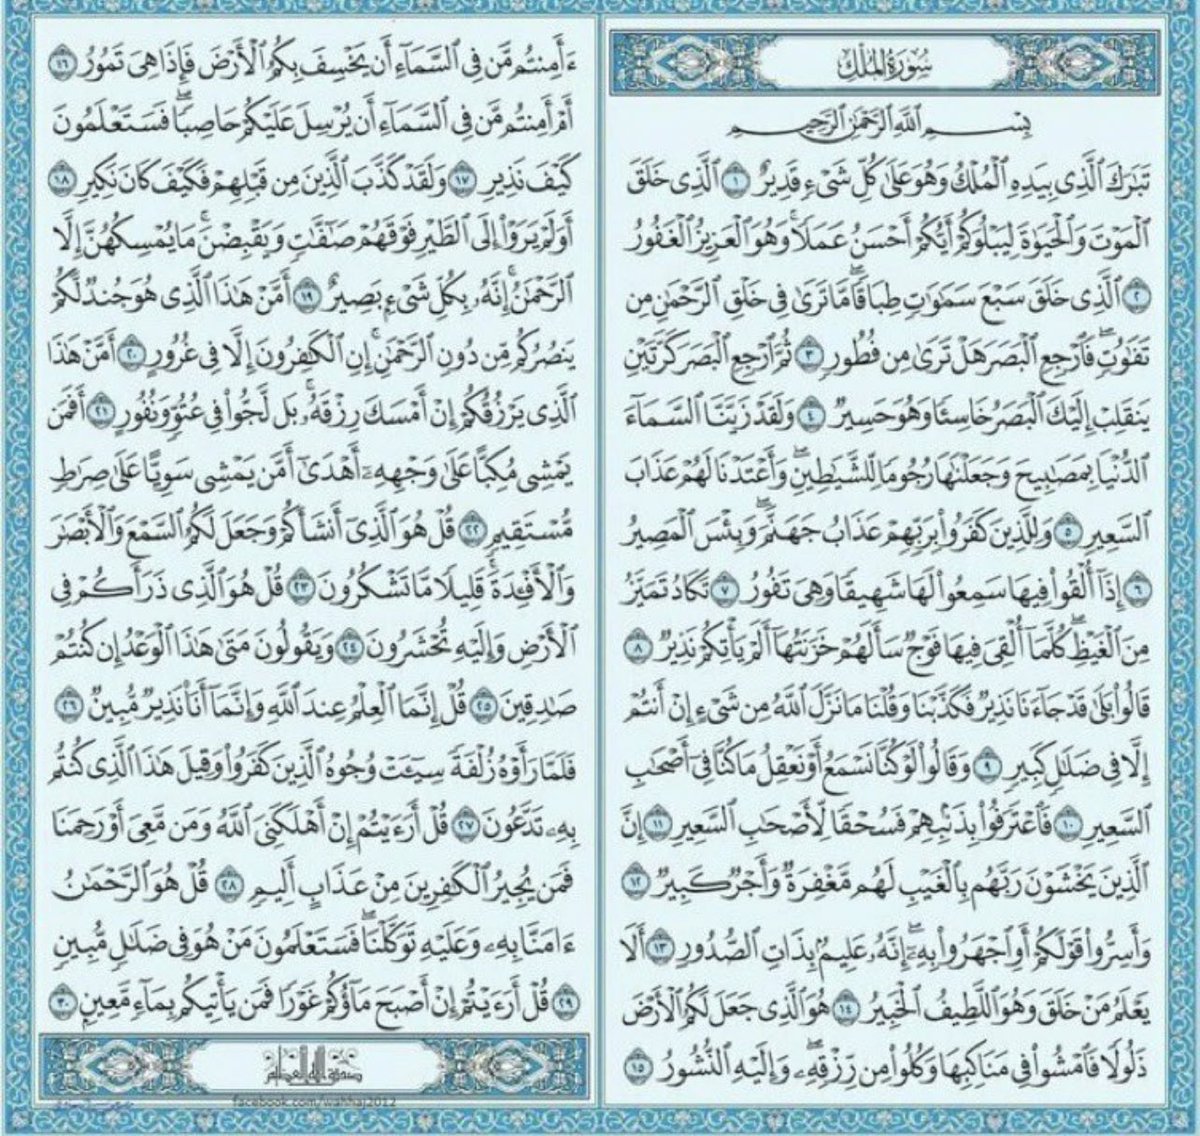 سُورَةُ الْمُلْكِ
بِسْمِ اللَّهِ الرَّحْمَٰنِ الرَّحِيمِ
تَبَٰرَكَ الَّذِي بِيَدِهِ الْمُلْكُ وَهُوَ عَلَىٰ كُلِّ شَيْءٍ قَدِيرٌ ١ الَّذِي خَلَقَ
الْمَوْتَ وَالْحَيَوٰةَ لِيَبْلُوَكُمْ أَيُّكُمْ أَحْسَنُ عَمَلًا ۚ وَهُوَ الْعَزِيزُ الْغَفُورُ
٢ الَّذِي خَلَقَ سَبْعَ سَمَٰوَٰتٍ طِبَاقًا ۖ مَّا تَرَىٰ فِي خَلْقِ الرَّحْمَٰنِ مِن
تَفَٰوُتٍ ۖ فَارْجِعِ الْبَصَرَ هَلْ تَرَىٰ مِن فُطُورٍ ٣ ثُمَّ ارْجِعِ الْبَصَرَ كَرَّتَيْنِ
يَنقَلِبْ إِلَيْكَ الْبَصَرُ خَاسِئًا وَهُوَ حَسِيرٌ ٤ وَلَقَدْ زَيَّنَّا السَّمَآءَ
الدُّنْيَا بِمَصَٰبِيحَ وَجَعَلْنَٰهَا رُجُومًا لِّلشَّيَٰطِينِ ۖ وَأَعْتَدْنَا لَهُمْ عَذَابَ
السَّعِيرِ ٥ وَلِلَّذِينَ كَفَرُوا۟ بِرَبِّهِمْ عَذَابُ جَهَنَّمَ ۖ وَبِئْسَ الْمَصِيرُ
٦ إِذَآ أُلْقُوا۟ فِيهَا سَمِعُوا۟ لَهَا شَهِيقًا وَهِيَ تَفُورُ ٧ تَكَادُ تَمَيَّزُ
مِنَ الْغَيْظِ ۖ كُلَّمَآ أُلْقِيَ فِيهَا فَوْجٌ سَأَلَهُمْ خَزَنَتُهَآ أَلَمْ يَأْتِكُمْ نَذِيرٌ ٨
قَالُوا۟ بَلَىٰ قَدْ جَآءَنَا نَذِيرٌ فَكَذَّبْنَا وَقُلْنَا مَا نَزَّلَ اللَّهُ مِن شَيْءٍ إِنْ أَنتُمْ
إِلَّا فِي ضَلَٰلٍ كَبِيرٍ ٩ وَقَالُوا۟ لَوْ كُنَّا نَسْمَعُ أَوْ نَعْقِلُ مَا كُنَّا فِيٓ أَصْحَٰبِ
السَّعِيرِ ١٠ فَاعْتَرَفُوا۟ بِذَنۢبِهِمْ فَسُحْقًا لِّأَصْحَٰبِ السَّعِيرِ ١١ إِنَّ
الَّذِينَ يَخْشَوْنَ رَبَّهُم بِالْغَيْبِ لَهُم مَّغْفِرَةٌ وَأَجْرٌ كَبِيرٌ ١٢
وَأَسِرُّوا۟ قَوْلَكُمْ أَوِ اجْهَرُوا۟ بِهِۦٓ ۖ إِنَّهُۥ عَلِيمٌۢ بِذَاتِ الصُّدُورِ ١٣ أَلَا
يَعْلَمُ مَنْ خَلَقَ وَهُوَ اللَّطِيفُ الْخَبِيرُ ١٤ هُوَ الَّذِي جَعَلَ لَكُمُ الْأَرْضَ
ذَلُولًا فَامْشُوا۟ فِي مَنَاكِبِهَا وَكُلُوا۟ مِن رِّزْقِهِۦ ۖ وَإِلَيْهِ النُّشُورُ ١٥
ءَأَمِنتُم مَّن فِي السَّمَآءِ أَن يَخْسِفَ بِكُمُ الْأَرْضَ فَإِذَا هِيَ تَمُورُ ١٦
أَمْ أَمِنتُم مَّن فِي السَّمَآءِ أَن يُرْسِلَ عَلَيْكُمْ حَاصِبًا ۖ فَسَتَعْلَمُونَ
كَيْفَ نَذِيرِ ١٧ وَلَقَدْ كَذَّبَ الَّذِينَ مِن قَبْلِهِمْ فَكَيْفَ كَانَ نَكِيرِ ١٨
أَوَلَمْ يَرَوْا۟ إِلَى الطَّيْرِ فَوْقَهُمْ صَٰٓفَّٰتٍ وَيَقْبِضْنَ ۚ مَا يُمْسِكُهُنَّ إِلَّا
الرَّحْمَٰنُ ۚ إِنَّهُۥ بِكُلِّ شَيْءٍۭ بَصِيرٌ ١٩ أَمَّنْ هَٰذَا الَّذِي هُوَ جُندٌ لَّكُمْ
يَنصُرُكُم مِّن دُونِ الرَّحْمَٰنِ ۚ إِنِ الْكَٰفِرُونَ إِلَّا فِي غُرُورٍ ٢٠ أَمَّنْ هَٰذَا
الَّذِي يَرْزُقُكُمْ إِنْ أَمْسَكَ رِزْقَهُۥ ۚ بَل لَّجُّوا۟ فِي عُتُوٍّ وَنُفُورٍ ٢١ أَفَمَن
يَمْشِي مُكِبًّا عَلَىٰ وَجْهِهِۦٓ أَهْدَىٰٓ أَمَّن يَمْشِي سَوِيًّا عَلَىٰ صِرَٰطٍ
مُّسْتَقِيمٍ ٢٢ قُلْ هُوَ الَّذِيٓ أَنشَأَكُمْ وَجَعَلَ لَكُمُ السَّمْعَ وَالْأَبْصَٰرَ
وَالْأَفْـِٔدَةَ ۖ قَلِيلًا مَّا تَشْكُرُونَ ٢٣ قُلْ هُوَ الَّذِي ذَرَأَكُمْ فِي
الْأَرْضِ وَإِلَيْهِ تُحْشَرُونَ ٢٤ وَيَقُولُونَ مَتَىٰ هَٰذَا الْوَعْدُ إِن كُنتُمْ
صَٰدِقِينَ ٢٥ قُلْ إِنَّمَا الْعِلْمُ عِندَ اللَّهِ وَإِنَّمَآ أَنَا۠ نَذِيرٌ مُّبِينٌ ٢٦
فَلَمَّا رَأَوْهُ زُلْفَةً سِيٓـَٔتْ وُجُوهُ الَّذِينَ كَفَرُوا۟ وَقِيلَ هَٰذَا الَّذِي كُنتُم
بِهِۦ تَدَّعُونَ ٢٧ قُلْ أَرَءَيْتُمْ إِنْ أَهْلَكَنِيَ اللَّهُ وَمَن مَّعِيَ أَوْ رَحِمَنَا
فَمَن يُجِيرُ الْكَٰفِرِينَ مِنْ عَذَابٍ أَلِيمٍ ٢٨ قُلْ هُوَ الرَّحْمَٰنُ
ءَامَنَّا بِهِۦ وَعَلَيْهِ تَوَكَّلْنَا ۖ فَسَتَعْلَمُونَ مَنْ هُوَ فِي ضَلَٰلٍ مُّبِينٍ
٢٩ قُلْ أَرَءَيْتُمْ إِنْ أَصْبَحَ مَآؤُكُمْ غَوْرًا فَمَن يَأْتِيكُم بِمَآءٍ مَّعِينٍۭ ٣٠
صدق الله العظيم
facebook.com/wahhaj2012